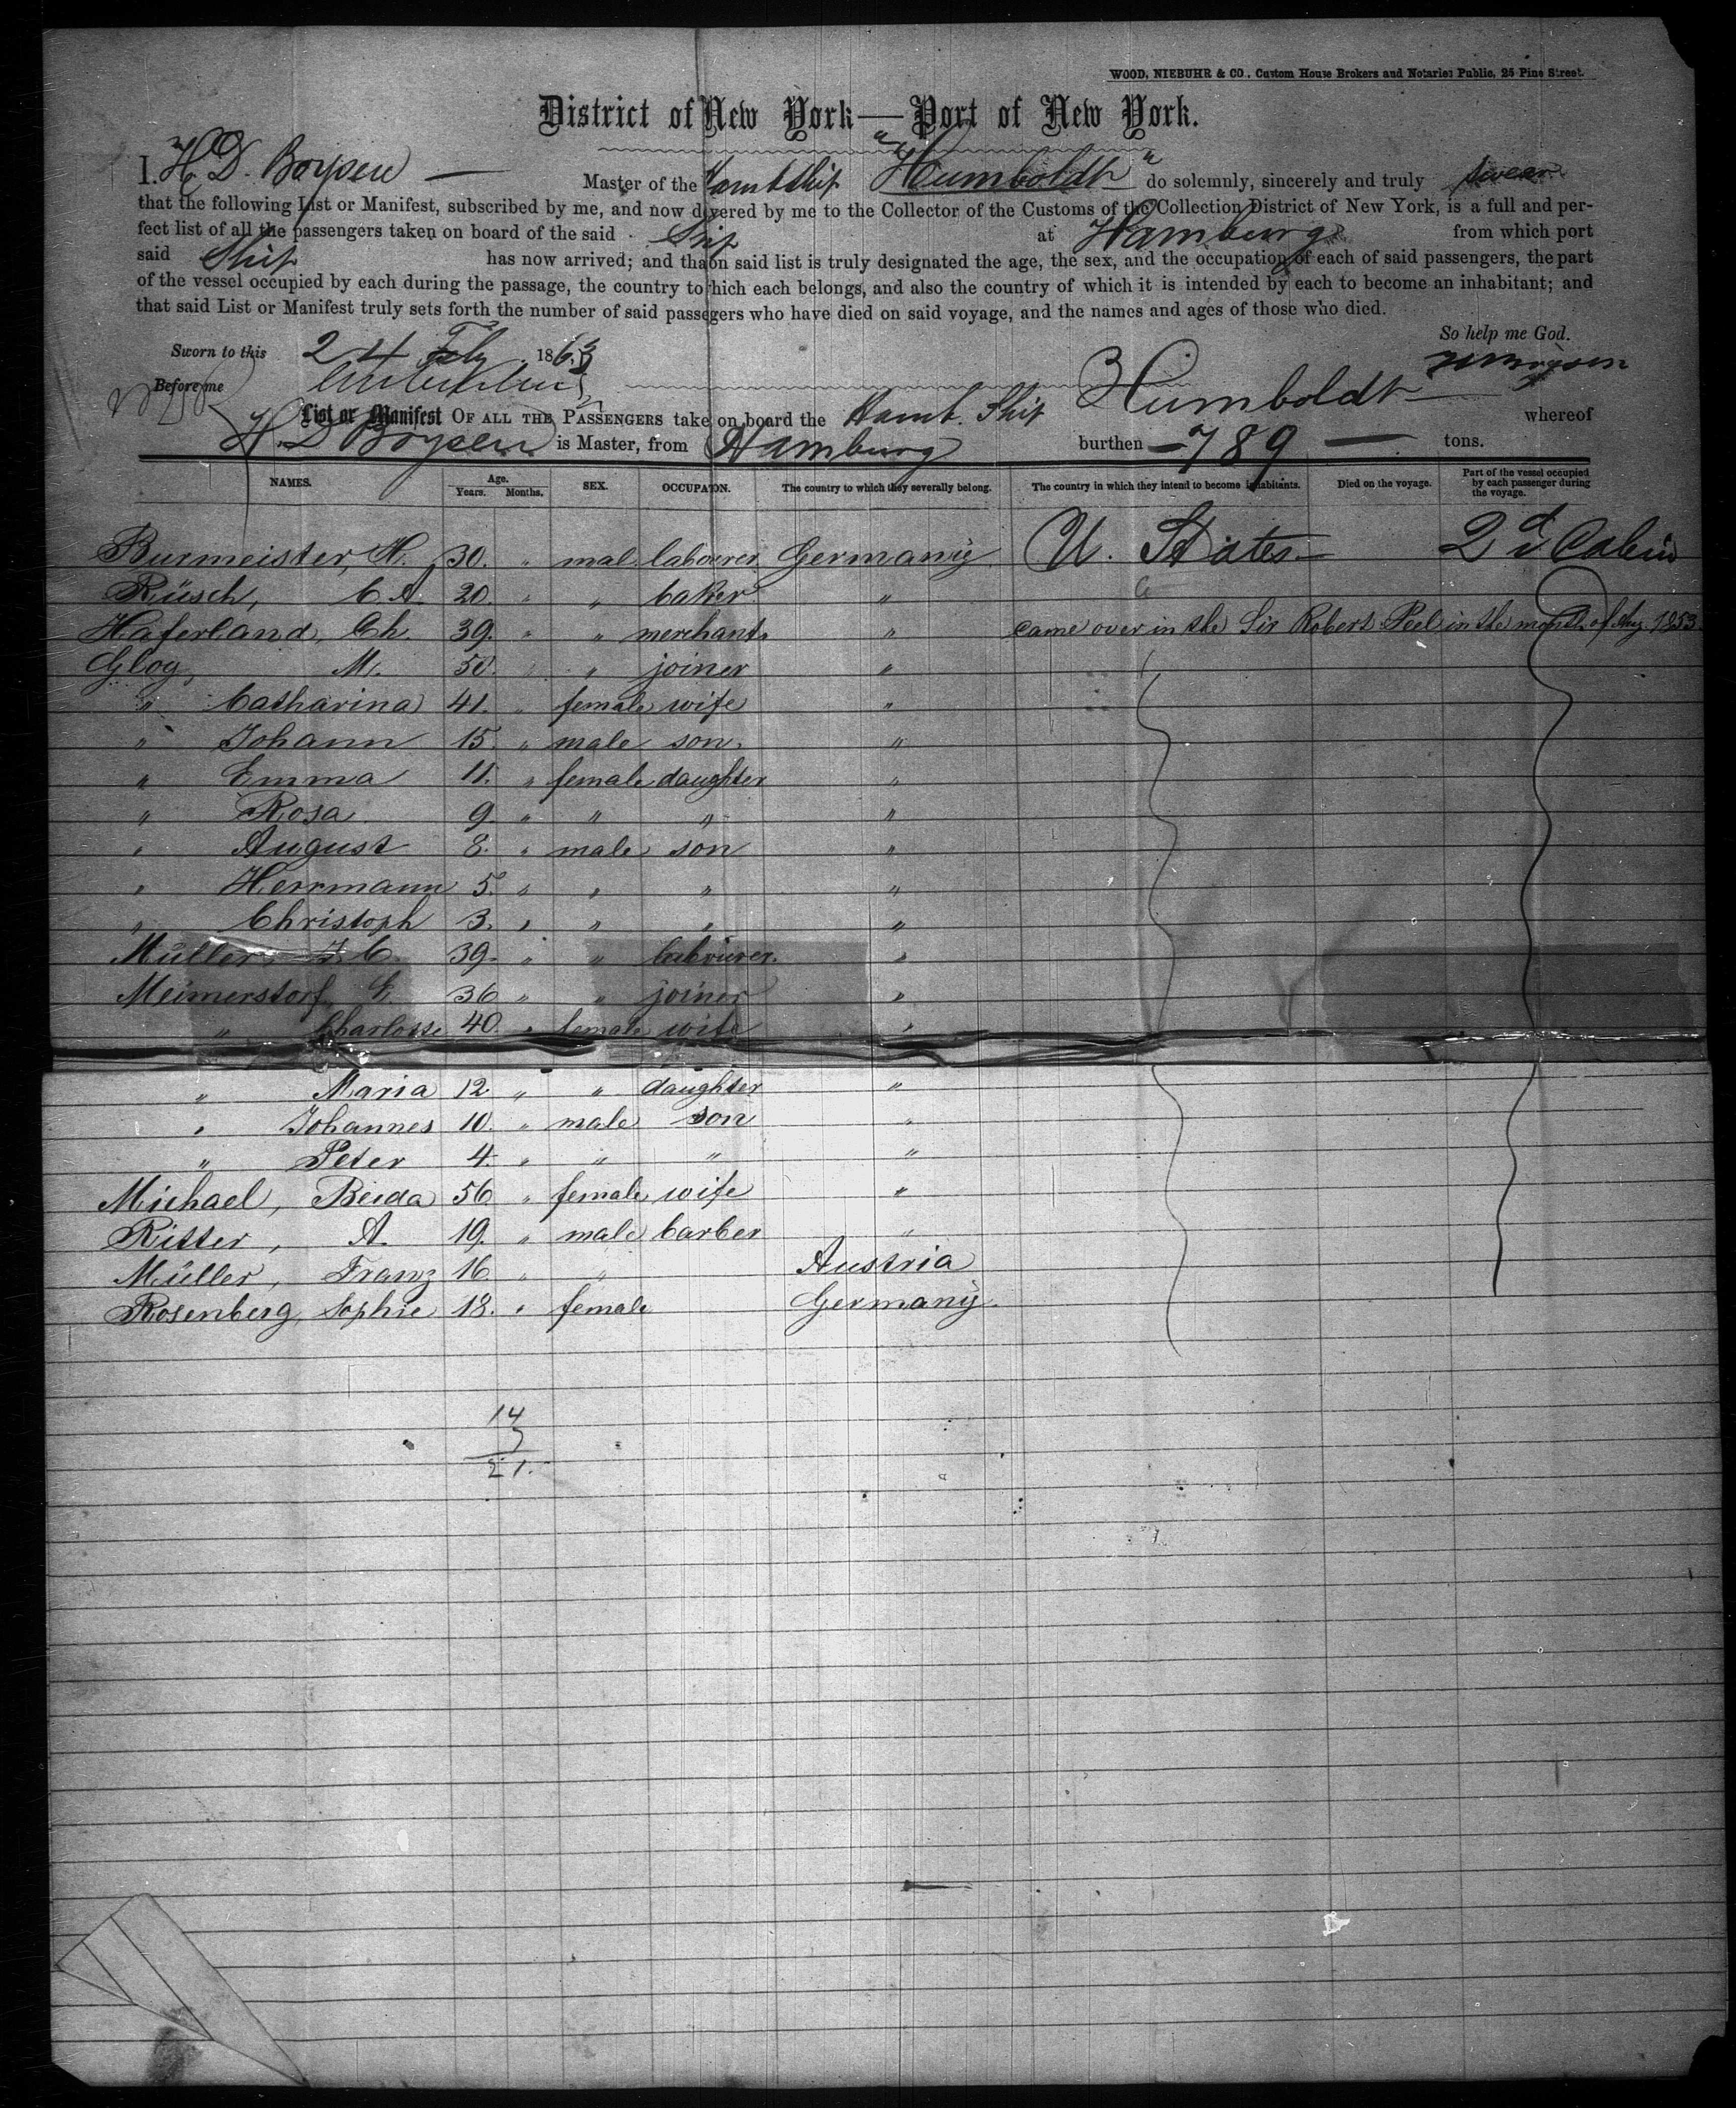 WOOD, NIEBUHR & CO., Custom House Brokers and Notaries Public, 25 Pine Street.
District of New York—Port of New York.
I. H. D. Boysen — Master of the Hamb Ship "Humboldt" do solemnly, sincerely and truly swear
that the following List or Manifest, subscribed by me, and now delivered by me to the Collector of the Customs of the Collection District of New York, is a full and per-
fect list of all the passengers taken on board of the said Ship at Hamburg from which port
said Ship has now arrived; and that on said list is truly designated the age, the sex, and the occupation of each of said passengers, the part
of the vessel occupied by each during the passage, the country to which each belongs, and also the country of which it is intended by each to become an inhabitant; and
that said List or Manifest truly sets forth the number of said passengers who have died on said voyage, and the names and ages of those who died.
So help me God.
Sworn to this 24 Feby 1863
Before me
List or Manifest OF ALL THE PASSENGERS taken on board the Hamb. Ship Humboldt — whereof
H. D Boysen is Master, from Hamburg burthen — 789 — tons.
NAMES. Age. Years. Months. SEX. OCCUPATION. The country to which they severally belong. The country in which they intend to become inhabitants. Died on the voyage. Part of the vessel occupied by each passenger during the voyage.
Burmeister, H. 30. " mal. labourer Germany U. States 2d Cabin
Rüsch, C A. 20. " " baker "
Haferland, Ch. 39. " " merchant " came over in the Sir Robert Peel in the month of Aug 1853
Glog, M. 50. " " joiner "
" Catharina 41. " female wife "
" Johann 15. " male son. "
" Emma 11. " female daughter "
" Rosa 9. " " " "
" August 8. " male son "
" Herrmann 5. " " " "
" Christoph 3. " " " "
Müller, J. C. 39. " " labourer. "
Meimerstorf, E. 36 " " joiner "
" Charlotte 40. " female wife "
" Maria 12. " " daughter "
" Johannes 10. " male son "
" Peter 4. " " " "
Michael, 56 " female wife "
Ritter, A. 19. " male barber "
Müller, Franz 16 " " Austria
Rosenberg, Sophie 18. " female Germany.
14
7
21.